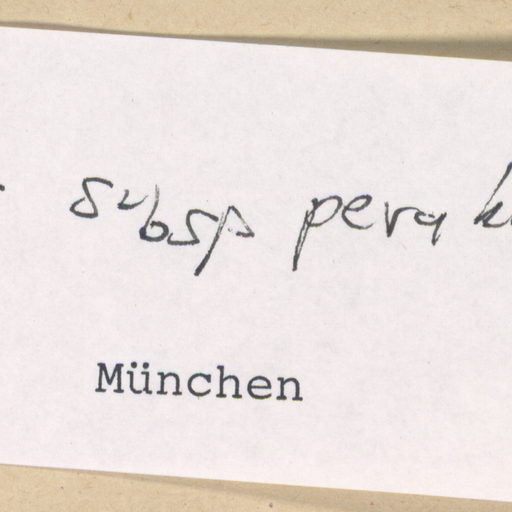 subsp pera
München